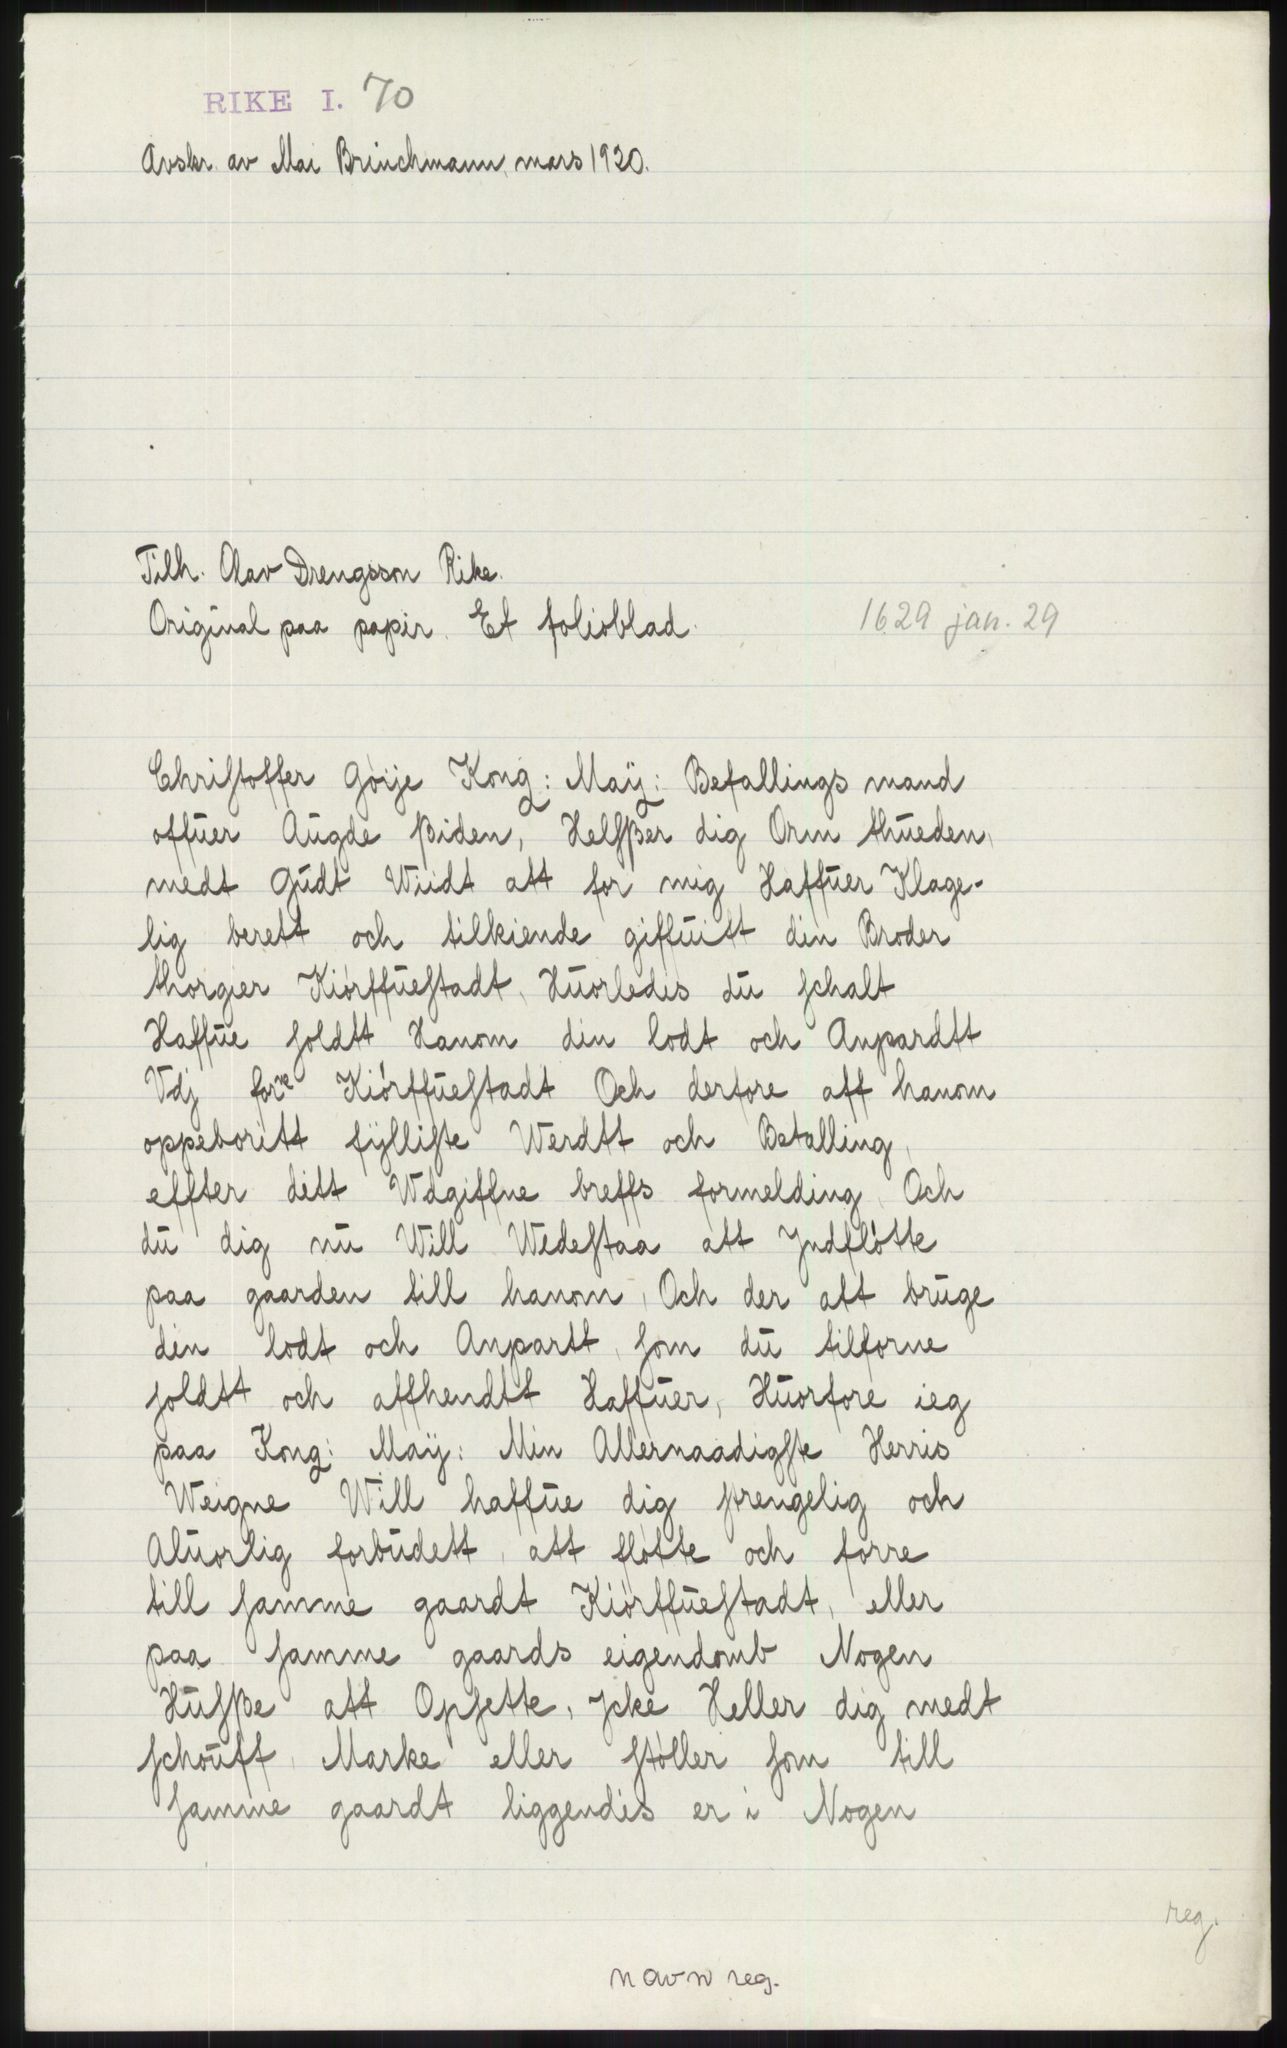 RIKE I. 70
Avskr. av Mai Brinchmann, mars 1920.
Tilh. Olav Drengsson Rike.
Original paa papir. Et folioblad.
1629 jan. 29
Chriſtoffer Göije Kong: Maÿ: Befallings mand
offuer Augde ßiden, Helſßer dig Orm thueden,
medt Gudt Wiidt att for mig Haffuer Klage-
lig berett och tilkiende giffuitt din Broder
thorgier Kiörffueſtadt, Huorledis du ſchalt
Haffue ſoldtt Hanom din lodt och Anpardtt
Vdj forne Kiörffueſtadt Och derfore aff hanom
oppeboritt fÿlliſte Werdtt och Betalling,
effter ditt Wdgiffne breffs formelding, Och
du dig nu Will Wedeſtaa att Jndflötte
paa gaarden till hanom, Och der att bruge
din lodt och Anpartt, ſom du tilforne
ſoldtt och affhendtt Haffuer, Huorfore ieg
paa Kong: Maÿ: Min Allernaadigſte Herris
Weigne Will haffue dig ſtrengelig och
Aluorlig forbudett, att fløtte och førre
till ſamme gaardt Kiörffueſtadt, eller
paa ſamme gaards eigendomb Nogen
Huſße att Opſette, Jcke Heller dig medt
ſchouff, Marke eller ſtøller ſom till
ſamme gaardt liggendis er i Nogen
reg.
navn reg.